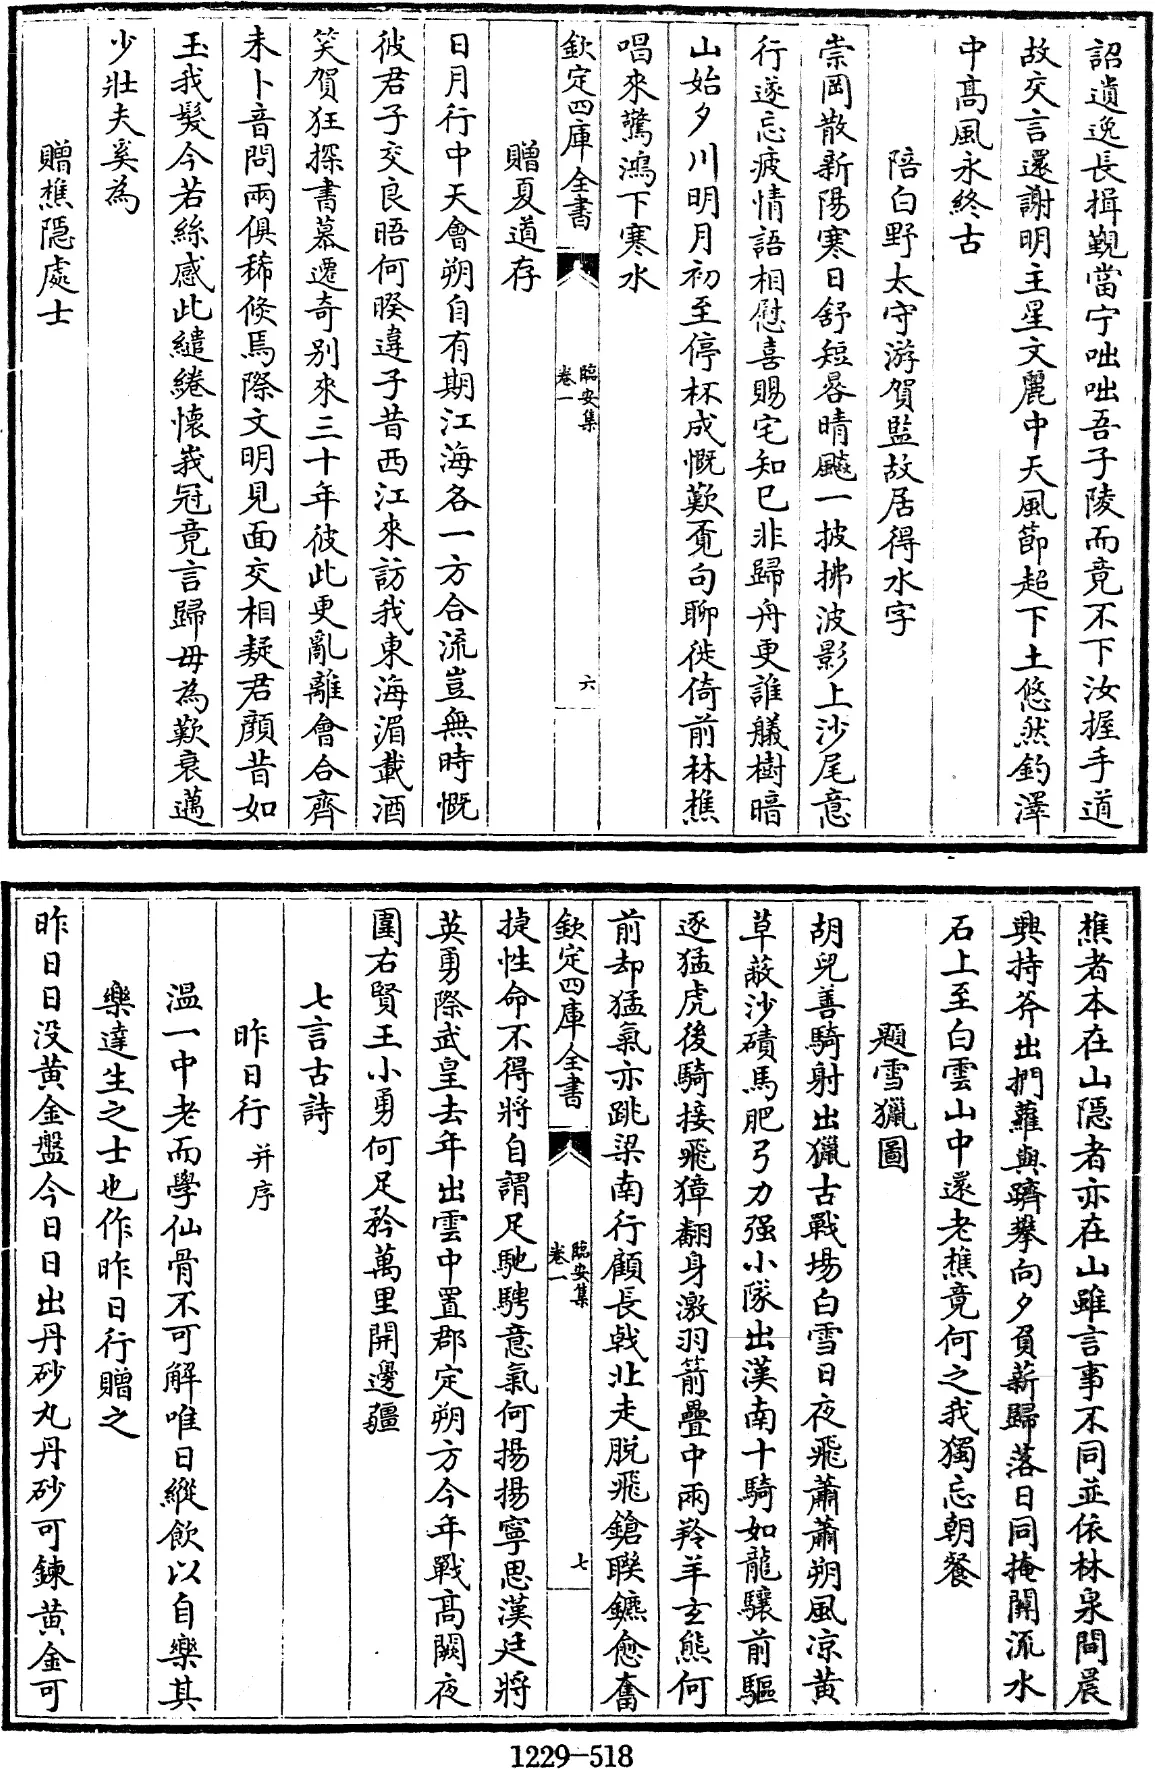 詔遺逸長揖觀當宁咄咄吾子陵而竟不下汝握手道
故交言還謝明主星文麗中天風節超下土悠然釣澤
中高風永終古
陪白野太守游賀監故居得水字
崇岡散新陽寒日舒短晷晴飈一披拂波影上沙尾意
行遂忘疲情語相慰喜賜宅知已非歸舟更誰艤樹暗
山始夕川明月初至停杯成慨歎覔句聊徙倚前林樵
唱來驚鴻下寒水
欽定四庫全書
臨安集
卷一
六
贈夏道存
日月行中天會朔自有期江海各一方合流豈無時慨
彼君子交良晤何暌違子昔西江來訪我東海湄載酒
笑賀狂探書慕遷奇別來三十年彼此更亂離會合齊
未卜音問兩俱稀倐焉際文明見面交相疑君顔昔如
玉我髮今若絲感此繾綣懷峩冠竟言歸毋為歎衰邁
少壯夫奚為
贈樵隠處士
樵者本在山隠者亦在山雖言事不同並依林泉間晨
興持斧出捫蘿與躋攀向夕負薪歸落日同掩關流水
石上至白雲山中還老樵竟何之我獨忘朝餐
題雪獵圖
胡兒善騎射出獵古戰場白雪日夜飛蕭蕭朔風凉黄
草蔽沙磧馬肥弓力强小隊出漢南十騎如龍驤前驅
逐猛虎後騎接飛獐翻身激羽箭疊中兩羚羊玄熊何
前却猛氣亦跳梁南行顧長戟北走脱飛鎗聨鑣愈奮
欽定四庫全書
臨安集
卷一
七
捷性命不得將自謂足馳騁意氣何揚揚寧思漢廷將
英勇際武皇去年出雲中置郡定朔方今年戰高闕夜
圍右賢王小勇何足矜萬里開邊疆
七言古詩
昨日行并序
温一中老而學仙骨不可解唯日縱飲以自樂其
樂達生之士也作昨日行贈之
昨日日没黄金盤今日日出丹砂丸丹砂可鍊黄金可
1229-518